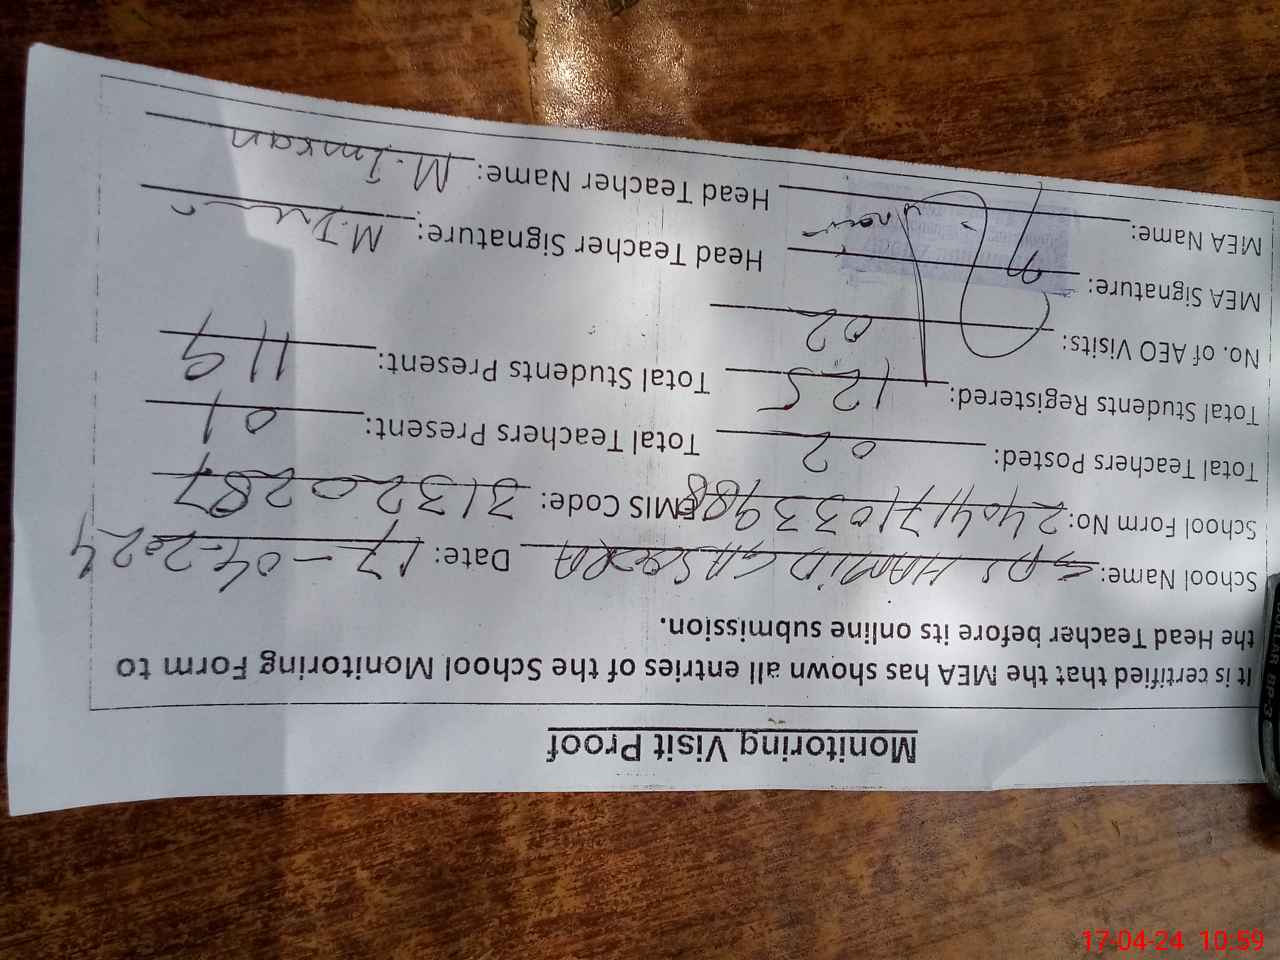 Monitoring Visit Proof
It is certified that the MEA has shown all entries of the School Monitoring Form to
the Head Teacher before its online submission.
School Name: GPS HAMID Date: 17-04-2024
School Form No: EMIS Code: 31320287
Total Teachers Posted: 02 Total Teachers Present: 01
Total Students Registered: 125 Total Students Present: 119
No. of AEO Visits: 02
MEA Signature: Head Teacher Signature:
MEA Name: Head Teacher Name: M. Imran
17-04-24 10:59